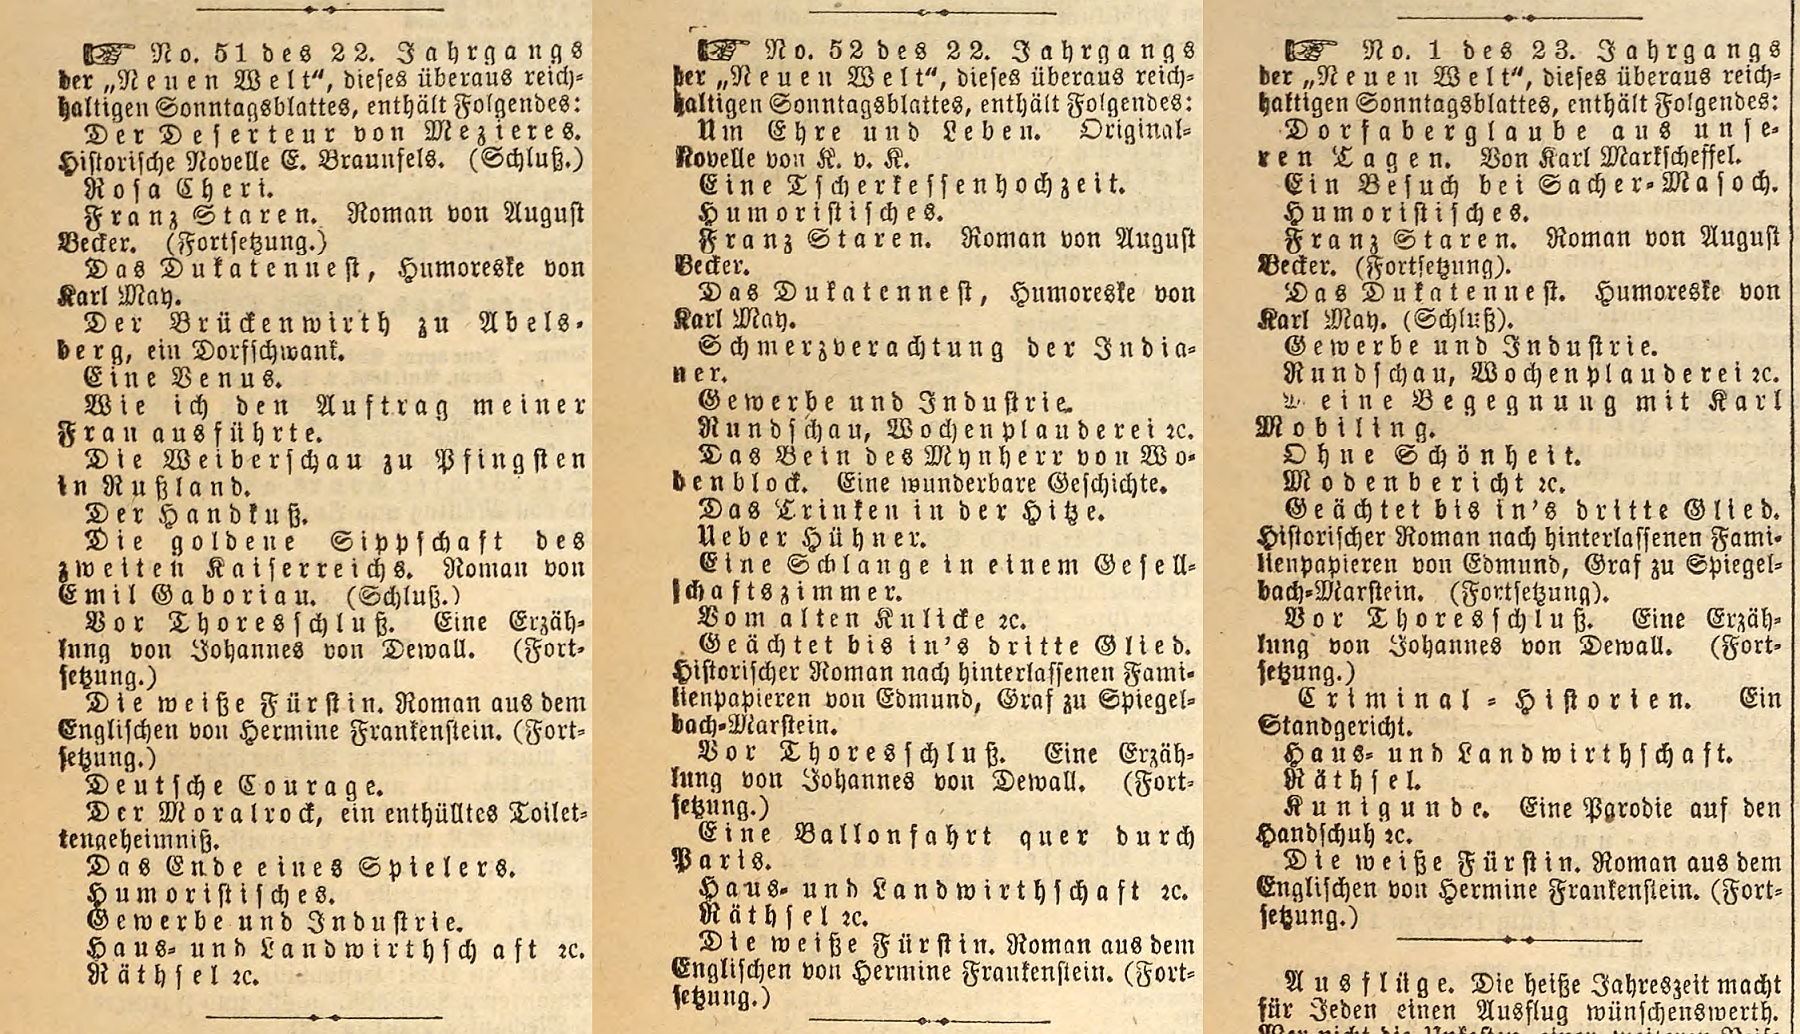 ☞ No. 51 des 22. Jahrgangs
der „Neuen Welt“, dieses überaus reich-
haltigen Sonntagsblattes, enthält Folgendes:
Der Deserteur von Mezieres.
Historische Novelle E. Braunfels. (Schluß.)
Rosa Cheri.
Franz Staren. Roman von August
Becker. (Fortsetzung.)
Das Dukatennest, Humoreske von
Karl May.
Der Brückenwirth zu Abels-
berg, ein Dorfschwank.
Eine Venus.
Wie ich den Auftrag meiner
Frau ausführte.
Die Weiberschau zu Pfingsten
in Rußland.
Der Handkuß.
Die goldene Sippschaft des
zweiten Kaiserreichs. Roman von
Emil Gaboriau. (Schluß.)
Vor Thoresschluß. Eine Erzäh-
lung von Johannes von Dewall. (Fort-
setzung.)
Die weiße Fürstin. Roman aus dem
Englischen von Hermine Frankenstein. (Fort-
setzung.)
Deutsche Courage.
Der Moralrock, ein enthülltes Toilet-
tengeheimniß.
Das Ende eines Spielers.
Humoristisches.
Gewerbe und Industrie.
Haus- und Landwirthschaft ꝛc.
Räthsel ꝛc.
☞ No. 52 des 22. Jahrgangs
der „Neuen Welt“, dieses überaus reich-
haltigen Sonntagsblattes, enthält Folgendes:
Um Ehre und Leben. Original-
Novelle von K. v. K.
Eine Tscherkessenhochzeit.
Humoristisches.
Franz Staren. Roman von August
Becker.
Das Dukatennest, Humoreske von
Karl May.
Schmerzverachtung der India-
ner.
Gewerbe und Industrie.
Rundschau, Wochenplauderei ꝛc.
Das Bein des Mynherr von Wo-
denblock. Eine wunderbare Geschichte.
Das Trinken in der Hitze.
Ueber Hühner.
Eine Schlange in einem Gesell-
schaftszimmer.
Vom alten Kulicke ꝛc.
Geächtet bis in's dritte Glied.
Historischer Roman nach hinterlassenen Fami-
lienpapieren von Edmund, Graf zu Spiegel-
bach-Marstein.
Vor Thoresschluß. Eine Erzäh-
lung von Johannes von Dewall. (Fort-
setzung.)
Eine Ballonfahrt quer durch
Paris.
Haus- und Landwirthschaft ꝛc.
Räthsel ꝛc.
Die weiße Fürstin. Roman aus dem
Englischen von Hermine Frankenstein. (Fort-
setzung.)
☞ No. 1 des 23. Jahrgangs
der „Neuen Welt“, dieses überaus reich-
haltigen Sonntagsblattes, enthält Folgendes:
Dorfaberglaube aus unse-
ren Tagen. Von Karl Markscheffel.
Ein Besuch bei Sacher-Masoch.
Humoristisches.
Franz Staren. Roman von August
Becker. (Fortsetzung).
Das Dukatennest. Humoreske von
Karl May. (Schluß).
Gewerbe und Industrie.
Rundschau, Wochenplauderei ꝛc.
eine Begegnung mit Karl
Mobiling.
Ohne Schönheit.
Modenbericht ꝛc.
Geächtet bis in's dritte Glied.
Historischer Roman nach hinterlassenen Fami-
lienpapieren von Edmund, Graf zu Spiegel-
bach-Marstein. (Fortsetzung).
Vor Thoresschluß. Eine Erzäh-
lung von Johannes von Dewall. (Fort-
setzung.)
Criminal-Historien. Ein
Standgericht.
Haus- und Landwirthschaft.
Räthsel.
Kunigunde. Eine Parodie auf den
Handschuh ꝛc.
Die weiße Fürstin. Roman aus dem
Englischen von Hermine Frankenstein. (Fort-
setzung.)
Ausflüge. Die heiße Jahreszeit macht
für Jeden einen Ausflug wünschenswerth.